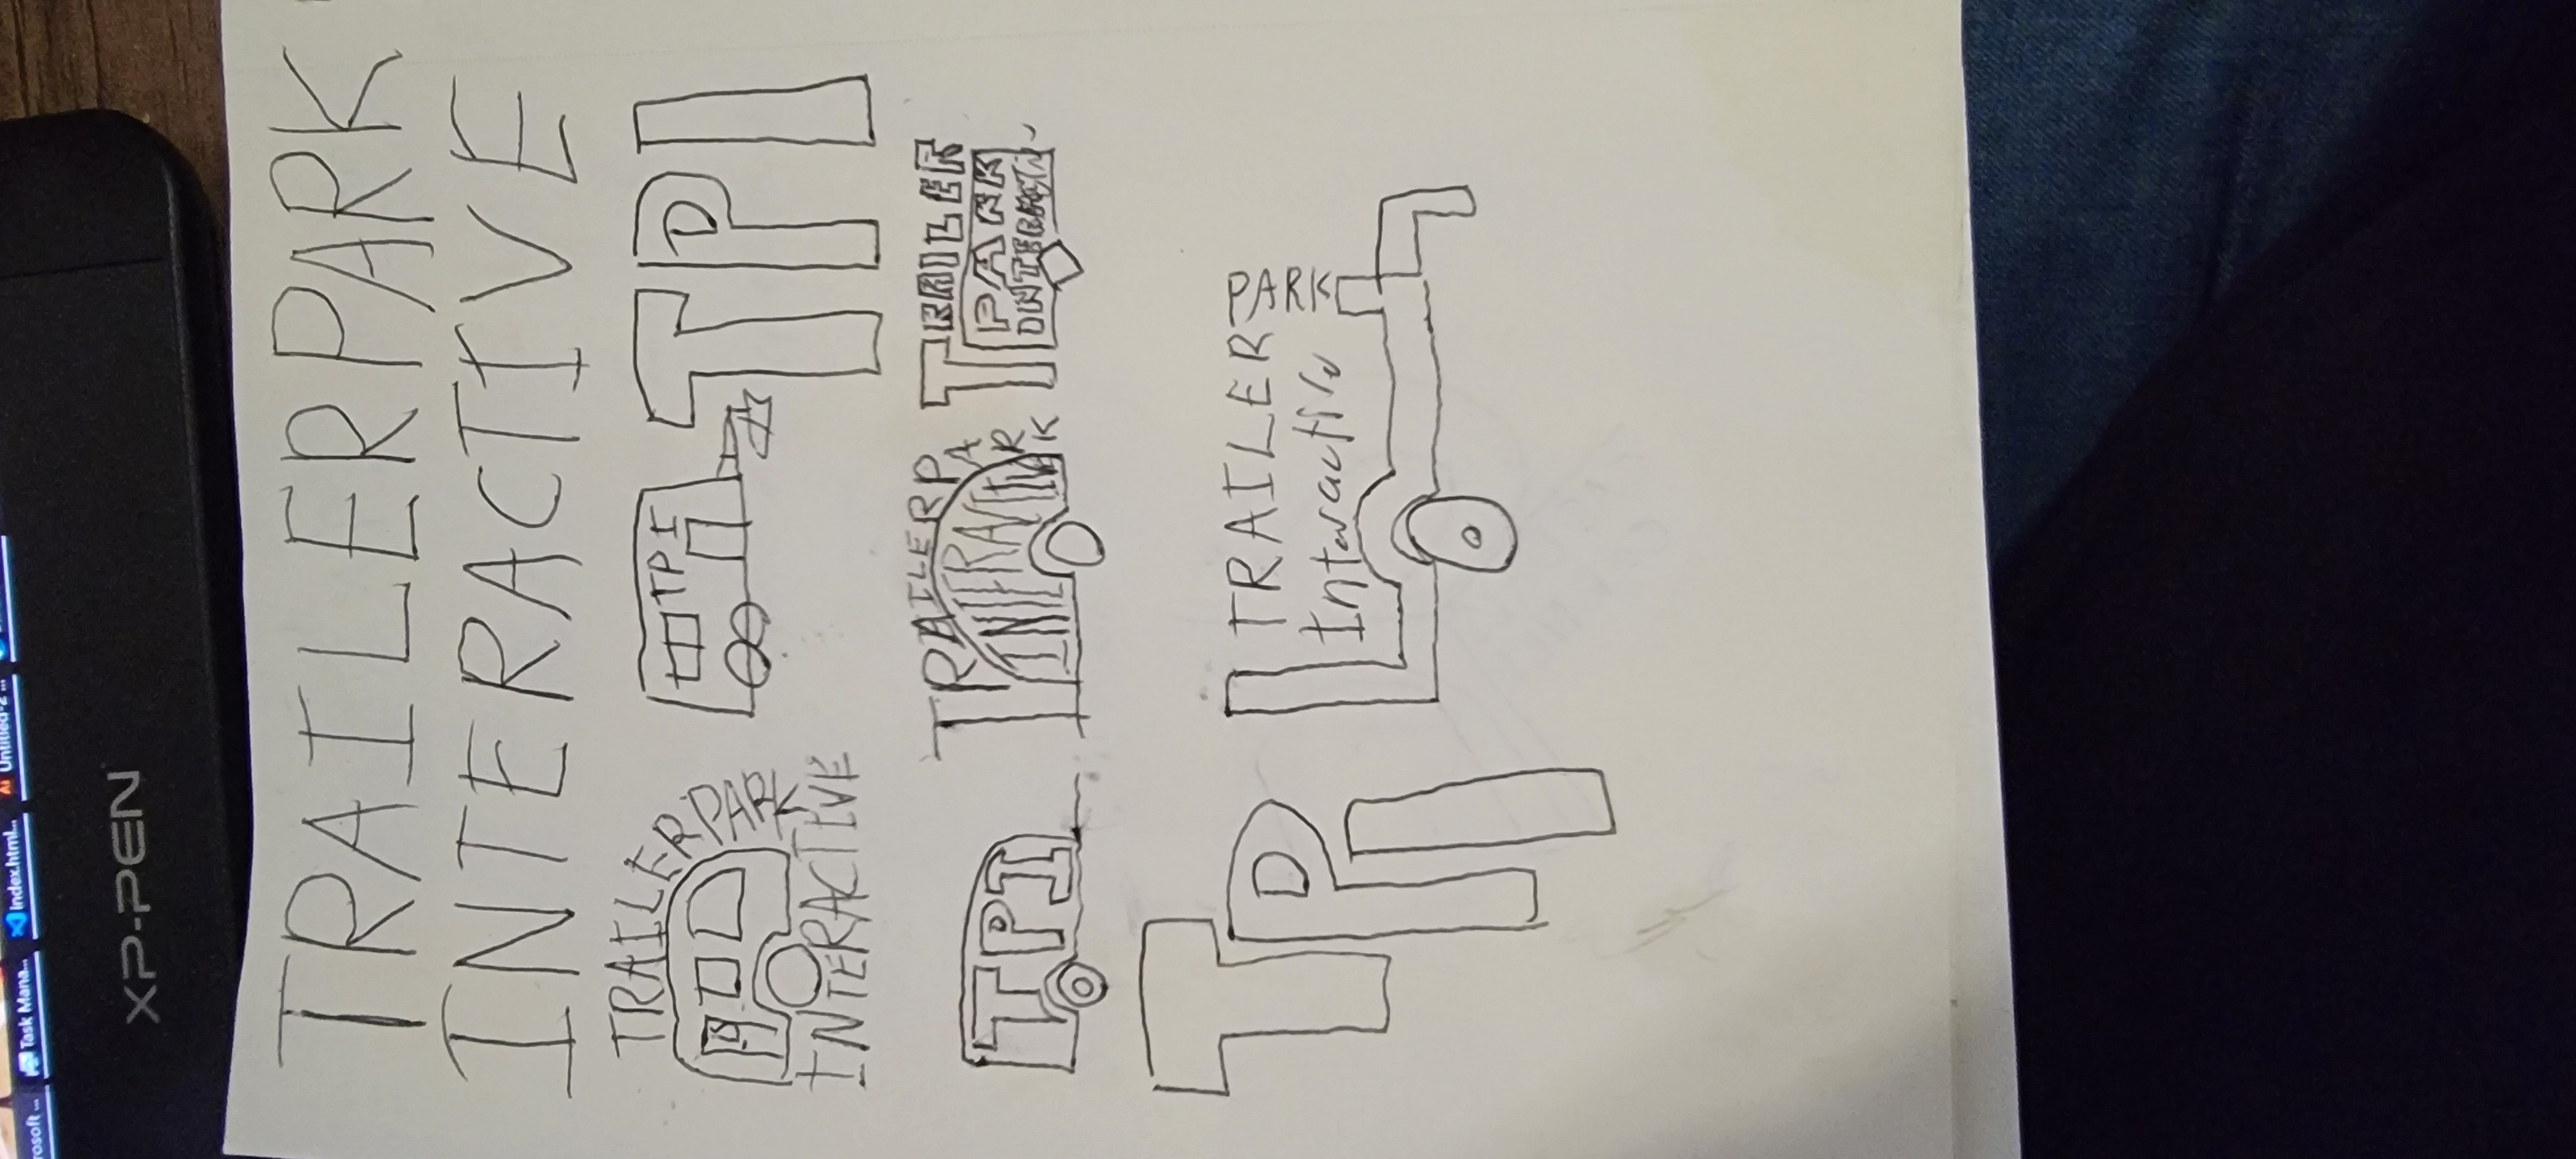 rosoft ...
Task Mana...
Index.html...
Untitled-2 ...
XP-PEN
TRAILERPARK
INTERACTIVE
TRAILERPARK
INTERACTIVE
TPI
TPI
TPI
TRAILERPARK
INTERACTIVE
TRAILER
PARK
TPI
TRAILER PARK
Interactive